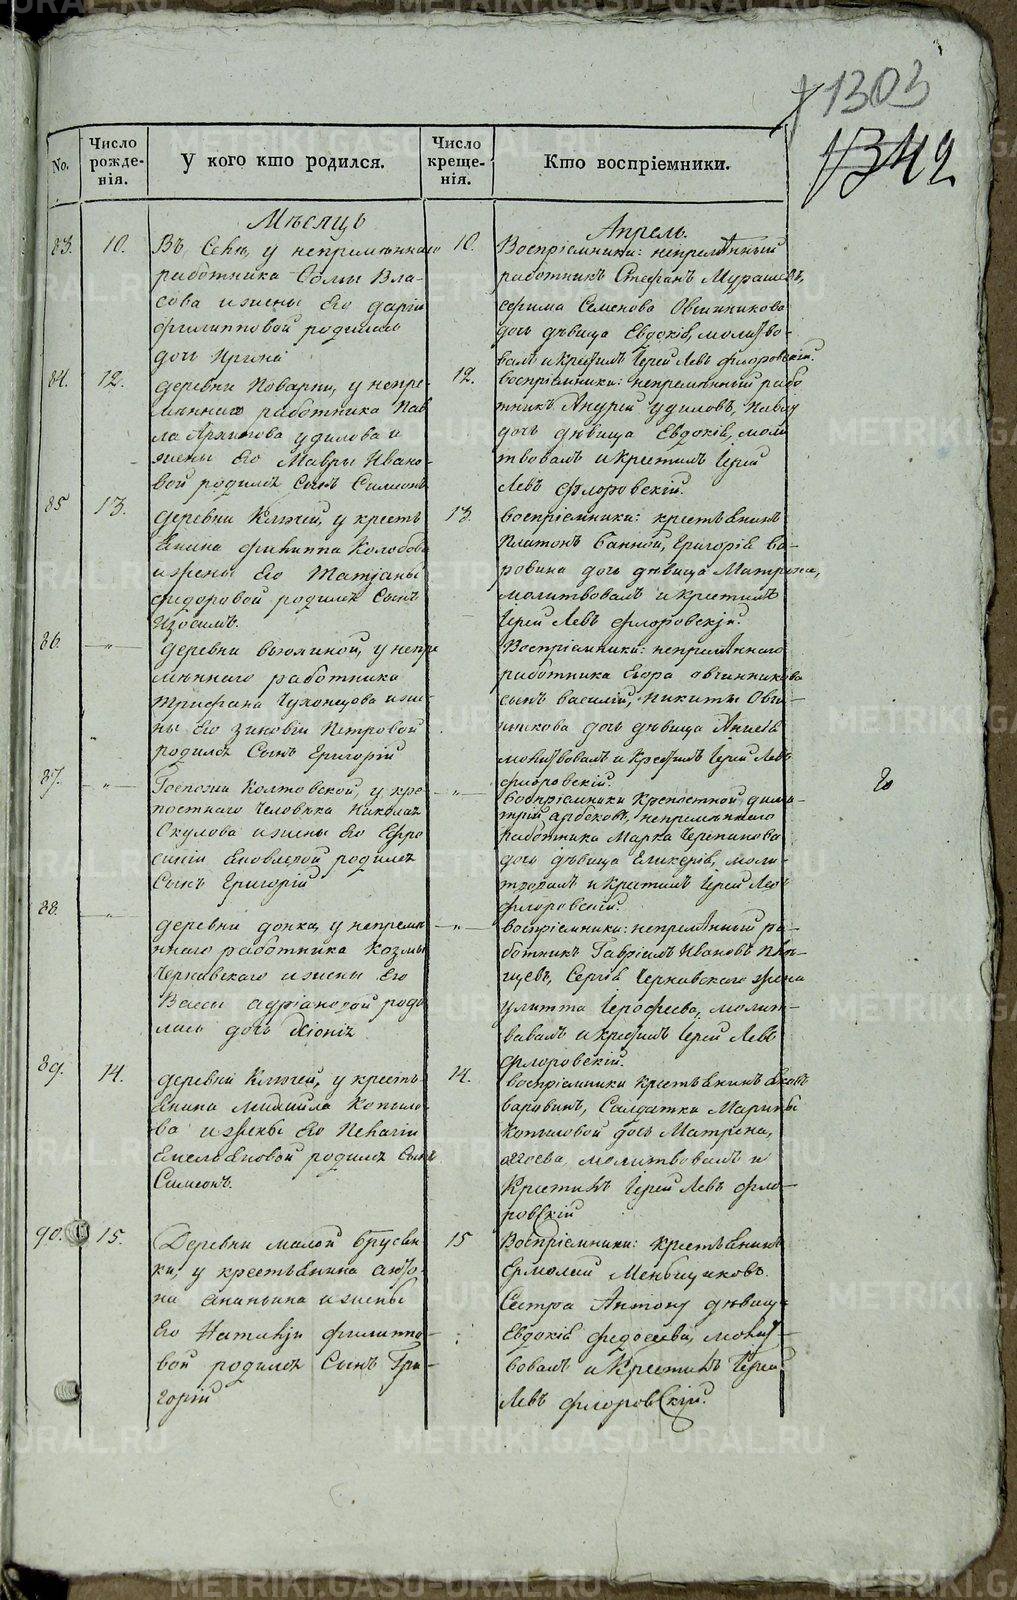 1303
1342
No.
Число рожде-нія.
У кого кто родился.
Число креще-нія.
Кто воспріемники.
Мѣсяцъ
Апрель.
83.
10.
Въ Селѣ, у непремѣннаго
работника Фомы Вла-
сова и жены Его Даріи
Филипповой родилась
дочь Ирина
10.
Воспріемники: непремѣнный
работникъ Стефанъ Мурашевъ,
Ефима Семенова Овчинникова
дочь дѣвица Евдокія, молитво-
валъ и крестилъ Іерей Левъ Флоровскій.
84.
12.
деревни Поварни, у непре-
мѣннаго работника Пав
ла Архипова Удилова и
жены Его Мавры Ивано-
вой родился Сынъ Симеонъ
12.
воспріемники: непремѣнный рабо
тникъ Андрей Удиловъ,
дочь дѣвица Евдокія, моли
твовалъ и крестилъ Іерей
Левъ Флоровскій.
85
13.
деревни Ключей, у кресть
янина Филиппа Колобова
и жены Его Татіаны
Федоровой родился Сынъ
Изосимъ.
13.
воспріемники: крестьянинъ
Платонъ Банной, Григорія Ва-
ровина дочь дѣвица Матрена,
молитвовалъ и крестилъ
Іерей Левъ Флоровскій.
86.
— „ —
деревни Вьюхиной, у непре
мѣннаго работника
Трифана Чухонцова и же-
ны Его Зиновіи Петровой
родился Сынъ Григорій
Воспріемники: непремѣннаго
работника Егора Овчинникова
сынъ Василий, Никиты Овчи-
нникова дочь дѣвица Анисія
молитвовалъ и Крестилъ Іерей Левъ
Флоровскій.
87.
— „ —
Госпожи Колтовской, у кре-
постнаго Человѣка Николая
Окулова и жены Его Ефро
синіи Яковлевой родился
Сынъ Григорій
— „ —
Воспріемники Крепостной Дими-
трій Арбековъ, непремѣннаго
работника Марка Черепанова
дочь дѣвица Гликерія, моли-
твовалъ и крестилъ Іерей Левъ
Флоровскій.
88.
— „ —
деревни у непремѣ
ннаго работника Козмы
Чернавскаго и жены Его
Вассы Адріановой роди
лась дочь Хіонія
— „ —
воспріемники: непремѣнный ра-
ботникъ Гавріилъ Ивановъ
Сергія Чернавскаго жена
Улитта Іерофеева, молит-
вовалъ и крестилъ Іерей Левъ
Флоровскій.
89.
14.
деревни Ключей, у кресть-
янина Михаила Копыло-
ва и жены Его Пелагіи
Емельяновой родился Сынъ
Симеонъ.
14.
воспріемники крестьянинъ Яковъ
Варовинъ, Салдатки Марины
Копыловой дочь Матрена,
молитвовалъ и
Крестилъ Іерей Левъ Фло-
ровскій
90.
15.
Деревни малой Брусян
ки, у крестьянина Анто-
на Ананьина и жены
Его Наталіи Филиппо-
вой родился Сынъ Гри-
горій
15
Воспріемники: крестьянинъ
Ермолай Меньщиковъ.
Сестра Антону дѣвица
Евдокія Федосеева, молит-
вовалъ и Крестилъ Іерей
Левъ Флоровскій.
METRIKI.GASO-URAL.RU